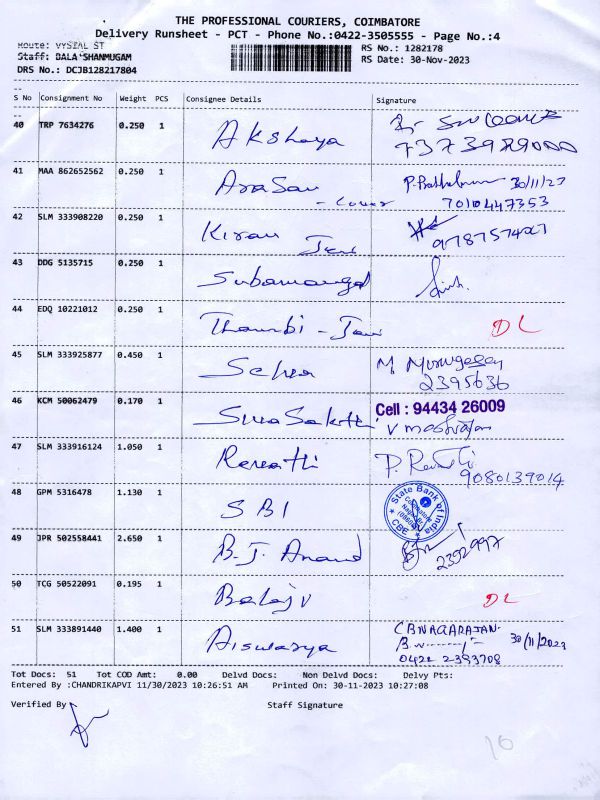 THE PROFESSIONAL COURIERS, COIMBATORE
Delivery Runsheet - PCT - Phone No.:0422-3505555 - Page No.:4
Route: VYSIAL ST RS No.: 1282178
Staff: BALA SHANMUGAM RS Date: 30-Nov-2023
DRS No.: DCJB128217804
S No Consignment No Weight PCS Consignee Details Signature
40 TRP 7634276 0.250 1 Akshaya
41 MAA 862652562 0.250 1 Arasan - Cover P. Prabhakaran 30/11/23
7010447353
42 SLM 333908220 0.250 1 Kiran Jew
43 DDG 5135715 0.250 1
44 EDQ 10221012 0.250 1 Thambi - Jew DL
45 SLM 333925877 0.450 1 M. Murugesan
2395636
46 KCM 50062479 0.170 1 Siva Sakthi Cell : 94434 26009
47 SLM 333916124 1.050 1 Revathi P. Revathi
9080139014
48 GPM 5316478 1.130 1 SBI State Bank of India CBE
49 JPR 502558441 2.650 1 B.J. Anand 2392997
50 TCG 50522091 0.195 1 Balaji DL
51 SLM 333891440 1.400 1 Aiswarya C.B NAGARAJAN
30/11/2023
0422 2383708
Tot Docs: 51 Tot COD Amt: 0.00 Delvd Docs: Non Delvd Docs: Delvy Pts:
Entered By :CHANDRIKAPVI 11/30/2023 10:26:51 AM Printed On: 30-11-2023 10:27:08
Verified By Staff Signature
16